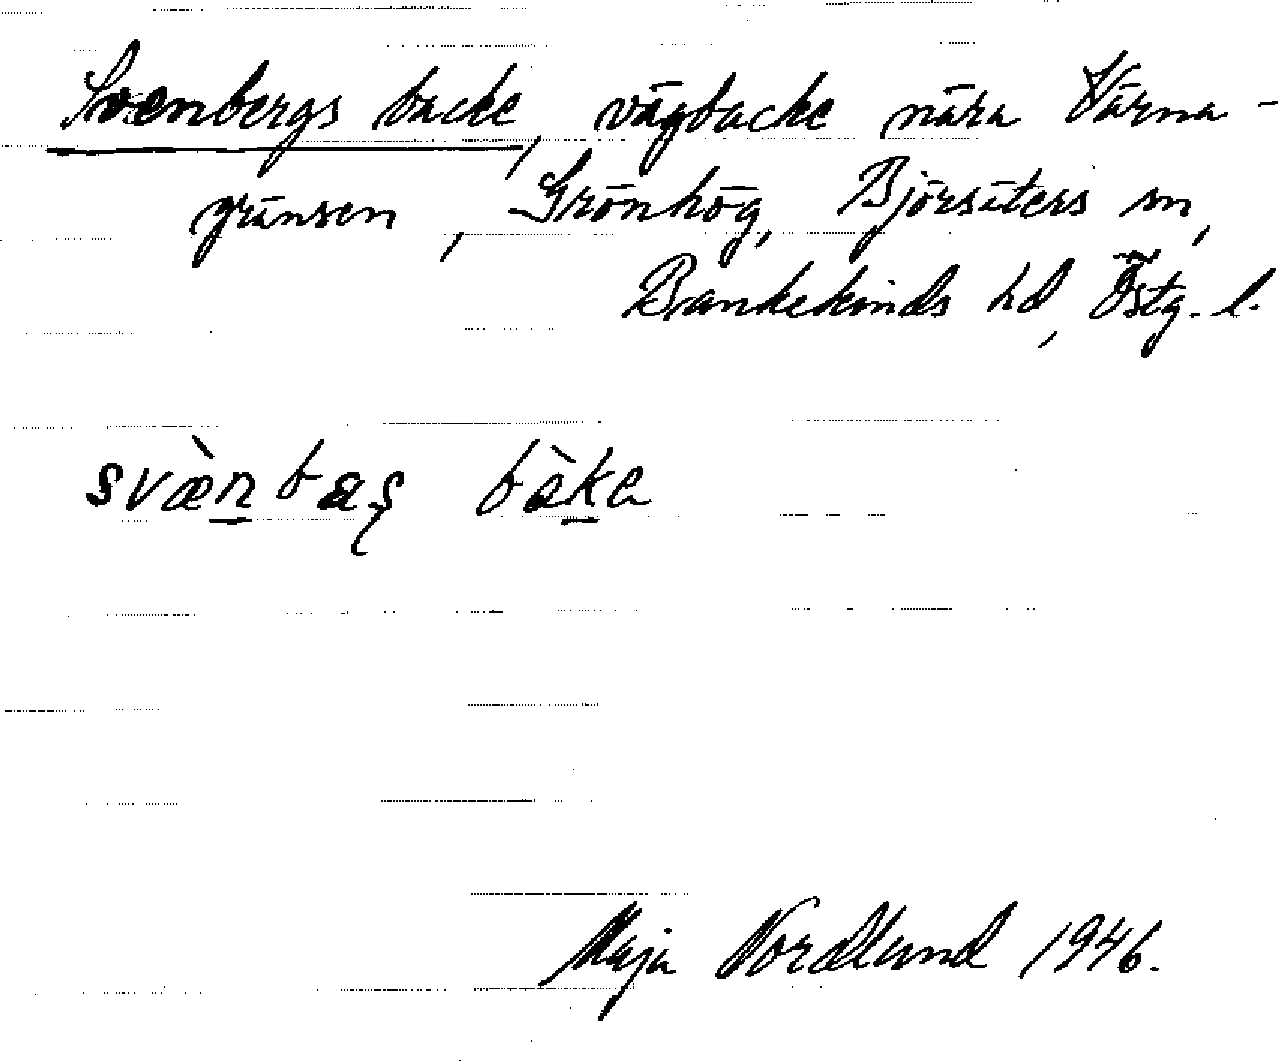 Svenbergs backe, vägbacke nära Värna-
gränsen, Grönhög, Björsäters sn,
Bankekinds hd, Östg. l.
svæ̀n̲bæʂ bàk̲a
Maja Nordlund 1946.